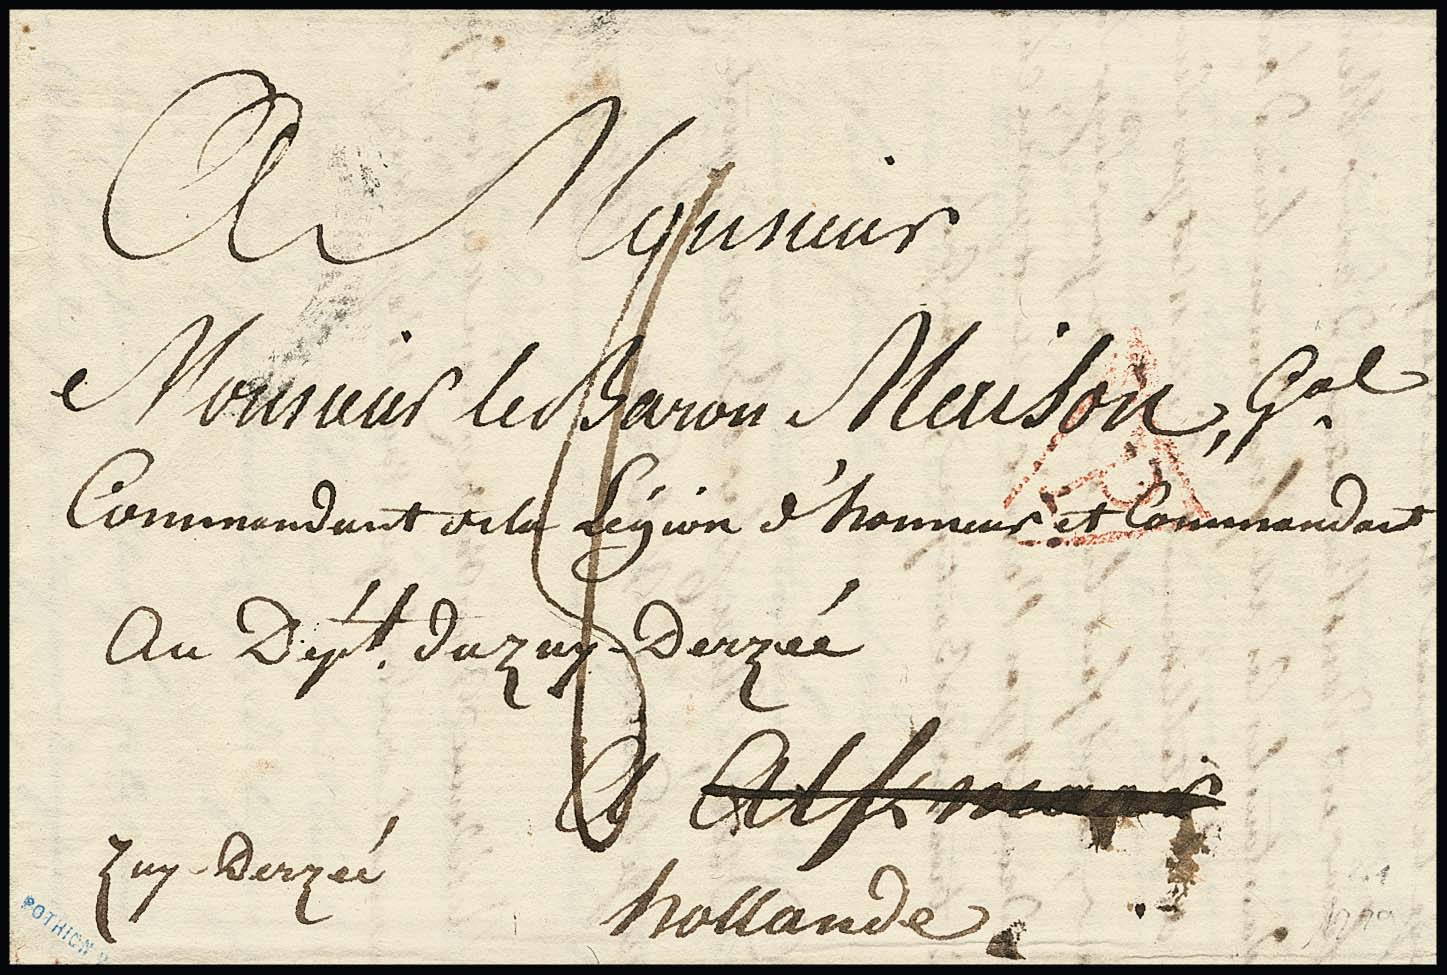 A Monsieur
Monsieur le Baron Maison, Gal
Commandant de la Légion d'honneur et Commandant
Au Dépt. du Zuy-Derzéé
A Alkmaar
hollande
Zuy-Derzéé
POTHION
P